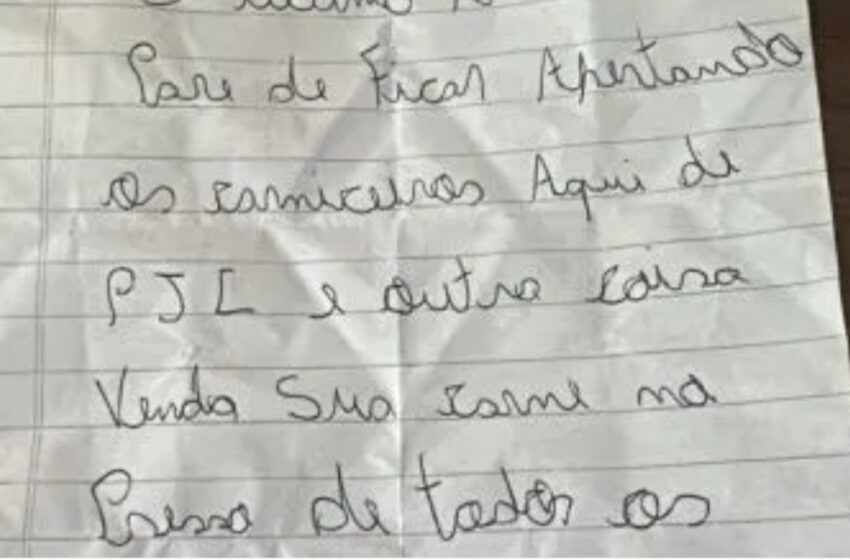 Pare de Ficar Apertando
os carniceiros Aqui de
PJL e outra coisa
Venda Sua carne na
Presso de todos os